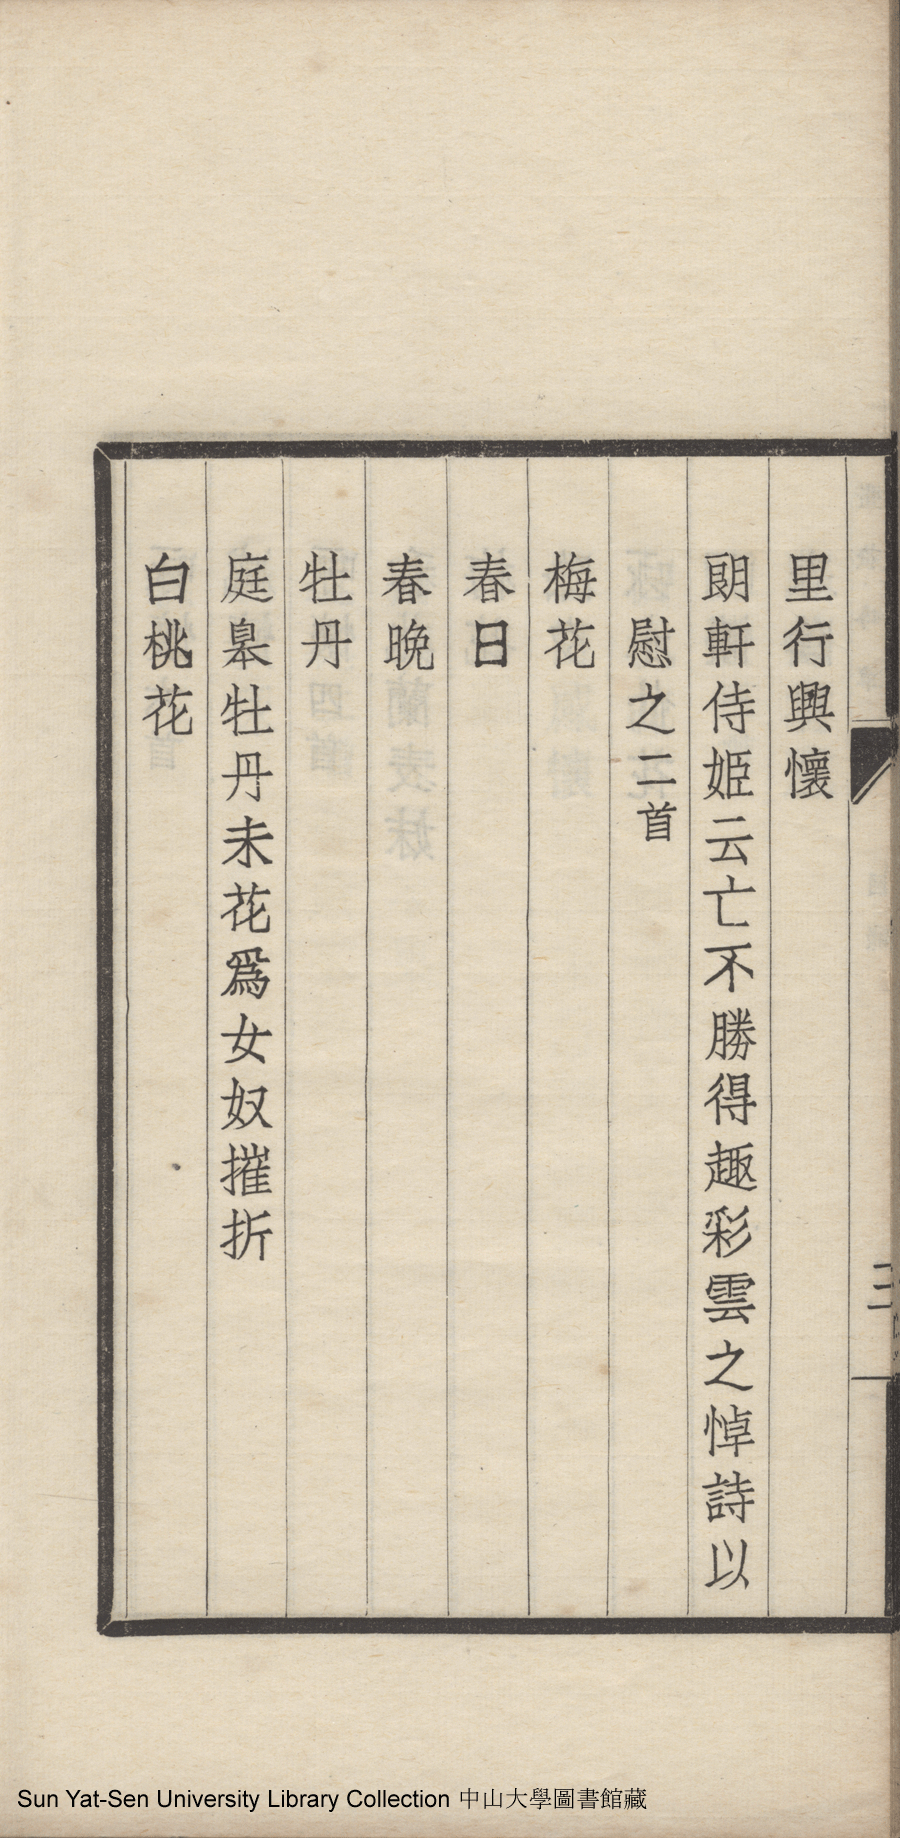 里行興懷
朗軒侍姬云亡不勝得趣彩雲之悼詩以
慰之二首
梅花
春日
春晚
牡丹
庭臯牡丹未花爲女奴摧折
白桃花
二
Sun Yat-Sen University Library Collection 中山大學圖書館藏